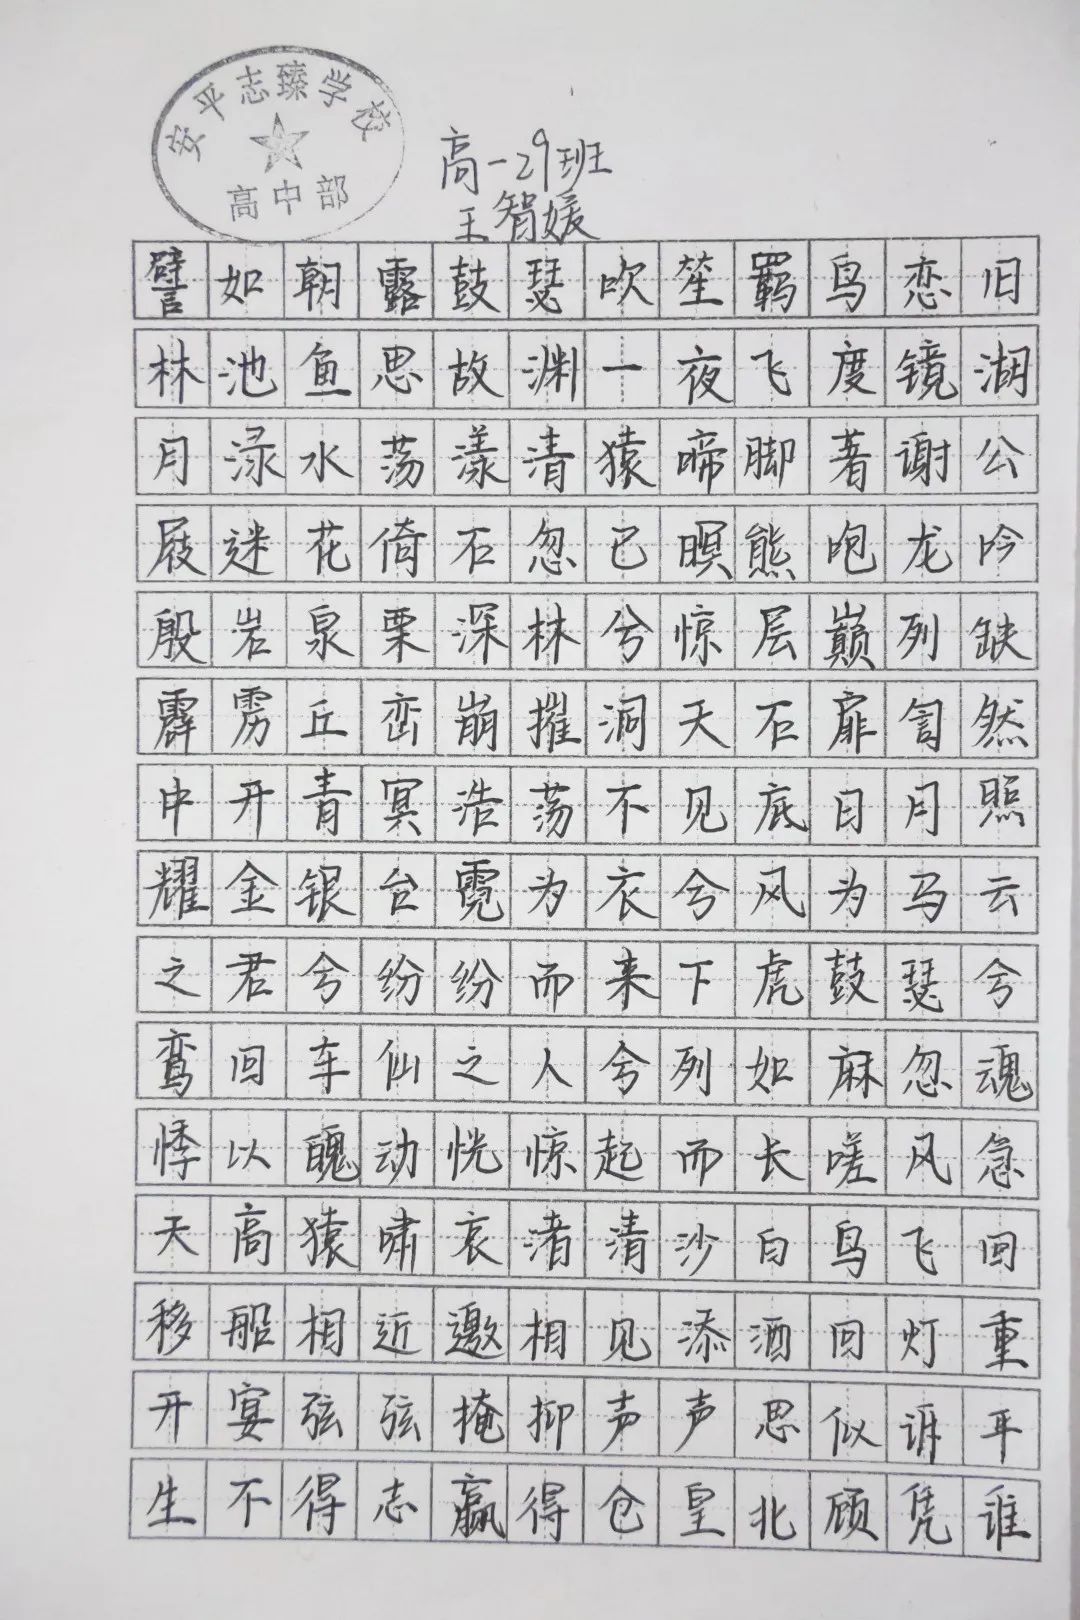 安平志臻学校
高中部
高一29班
王智媛
譬如朝露鼓瑟吹笙羁鸟恋旧
林池鱼思故渊一夜飞度镜湖
月渌水荡漾清猿啼脚著谢公
屐迷花倚石忽已暝熊咆龙吟
殷岩泉栗深林兮惊层巅列缺
霹雳丘峦崩摧洞天石扉訇然
中开青冥浩荡不见底日月照
耀金银台霓为衣兮风为马云
之君兮纷纷而来下虎鼓瑟兮
鸾回车仙之人兮列如麻忽魂
悸以魄动恍惊起而长嗟风急
天高猿啸哀渚清沙白鸟飞回
移船相近邀相见添酒回灯重
开宴弦弦掩抑声声思似诉平
生不得志赢得仓皇北顾凭谁